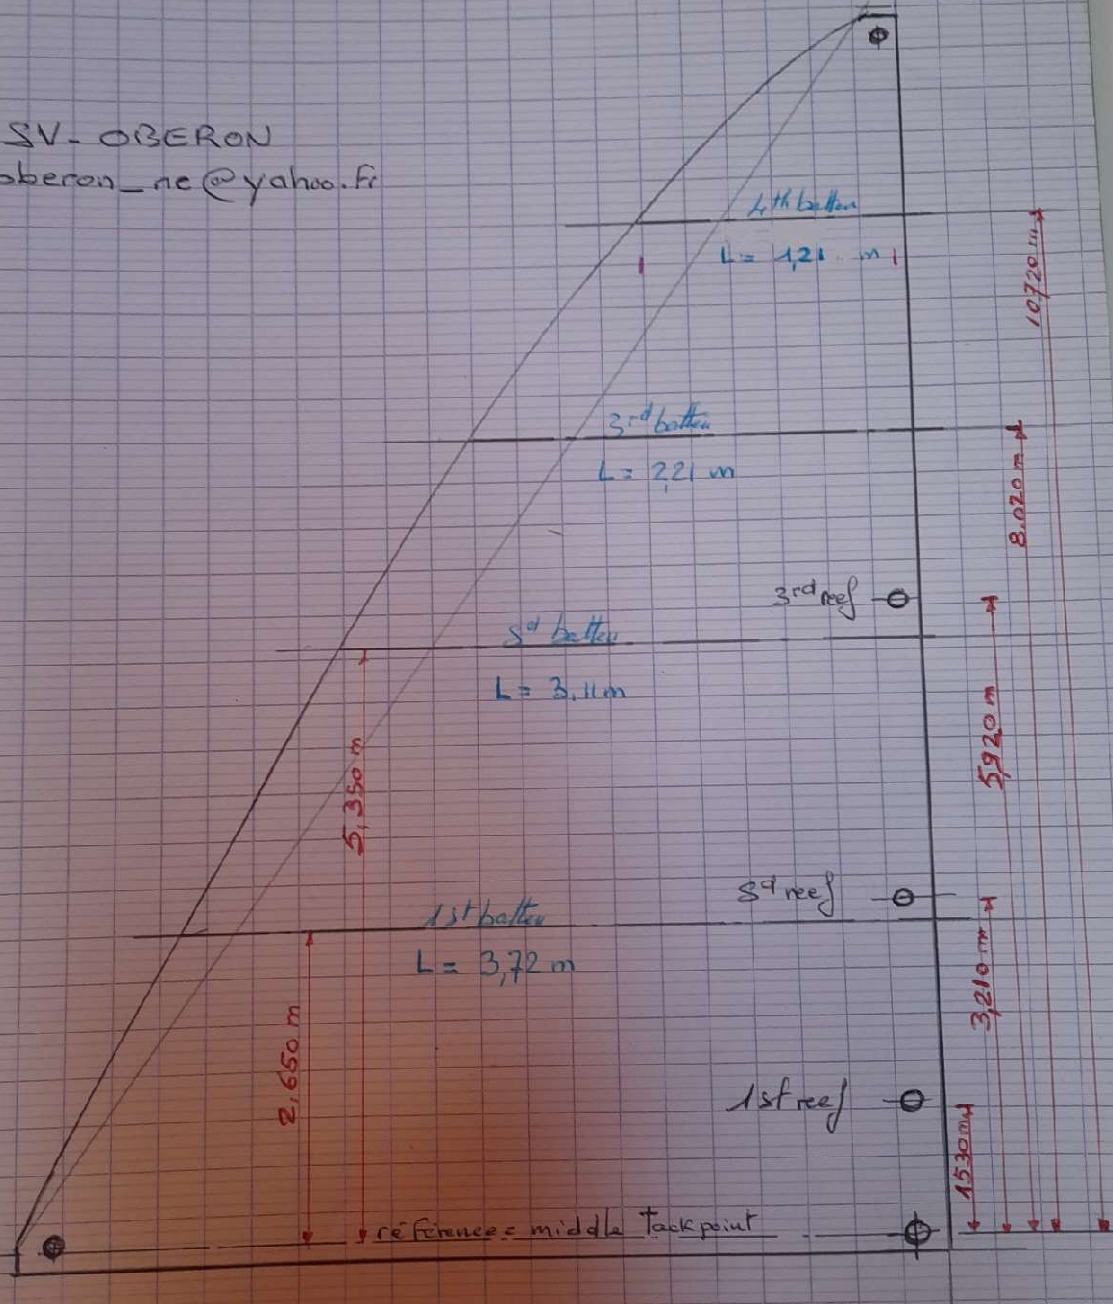 SV- OBERON
oberon_ne@yahoo.fr
4th batten
L = 1,21 m
10720 m
3rd batten
L = 2,21 m
8.020 m
3rd reef
Sd batten
L = 3,11m
5,350 m
5,920 m
Sd reef
1st batten
L = 3,72 m
3,210 m
2,650 m
1st reef
1530m
référence = middle Tackpoint